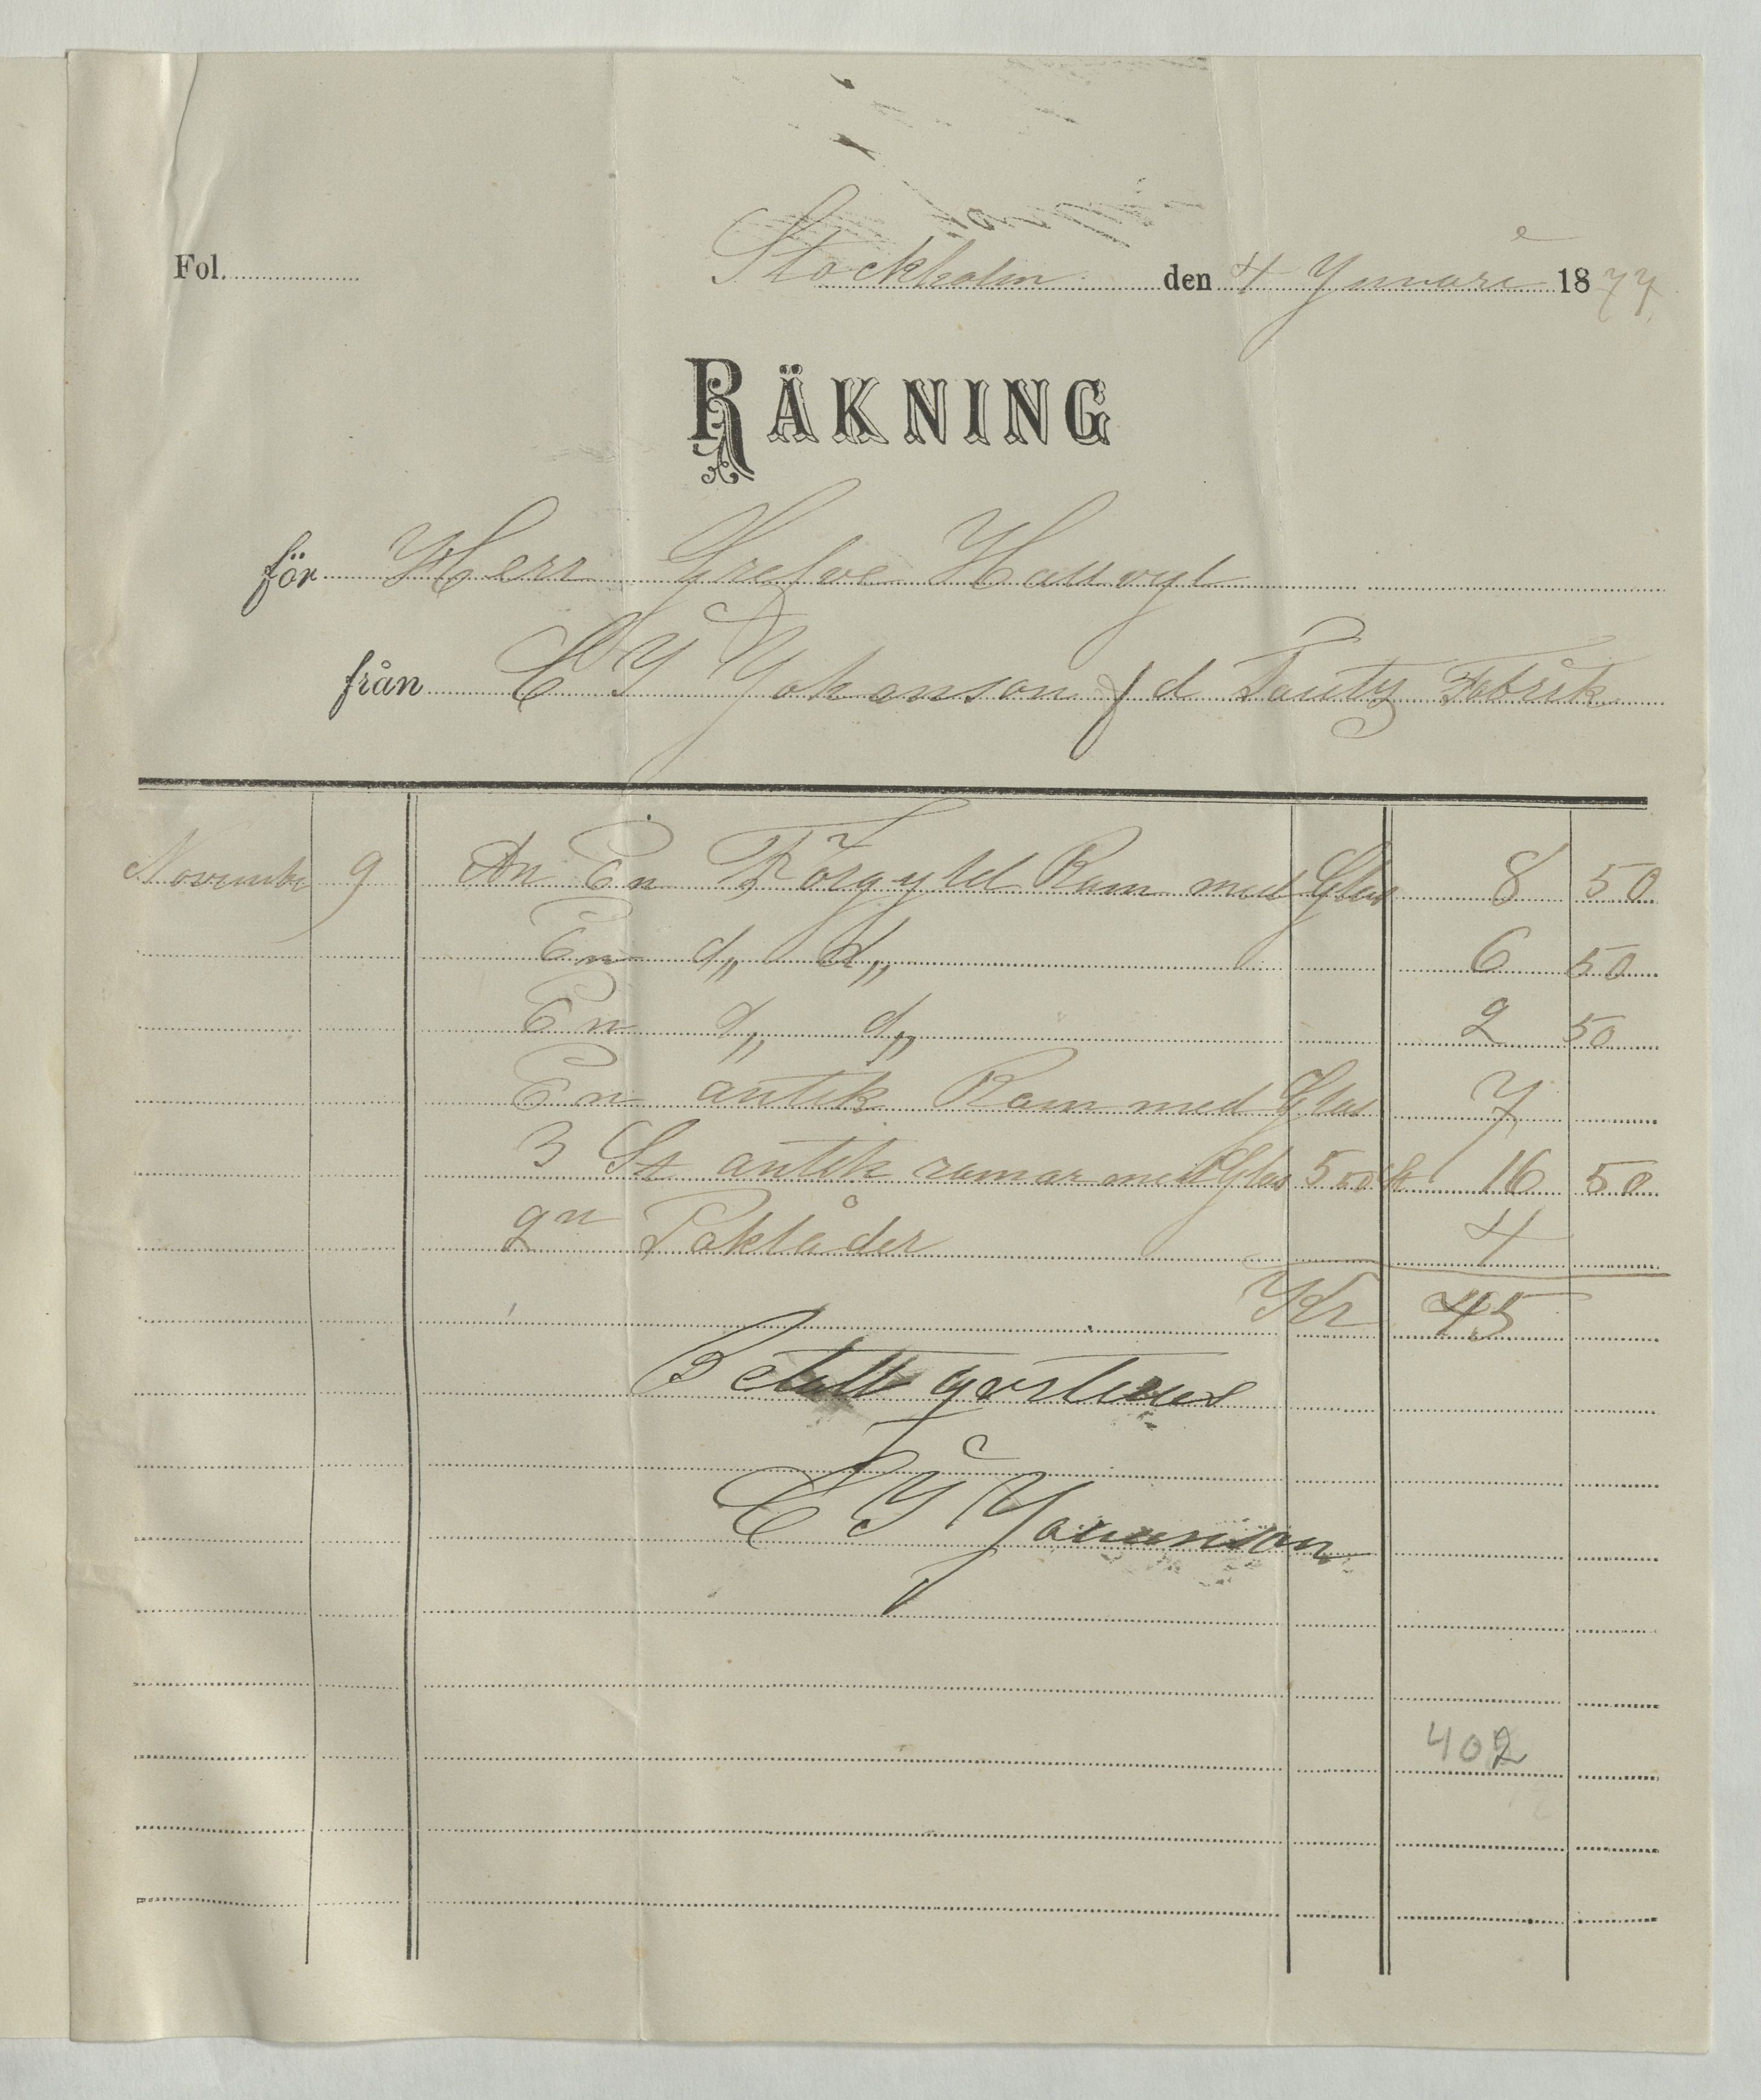 Fol. Stockholm den 4 Januari 1877
RÄKNING
för Herr Grefve Hallvyl
från C J Johanson f d Tautz Fabrik
November 9 An En Förgyld Ram med Glas 8 50
En d,, d,, 6 50
En d,, d,, 2 50
En antik Ram med Glas 7
3 St antik ramar med Glas 5 50 st 16 50
2n Paklåder 4
Kr 45
Betalt qvsteras
C J Johanson
402